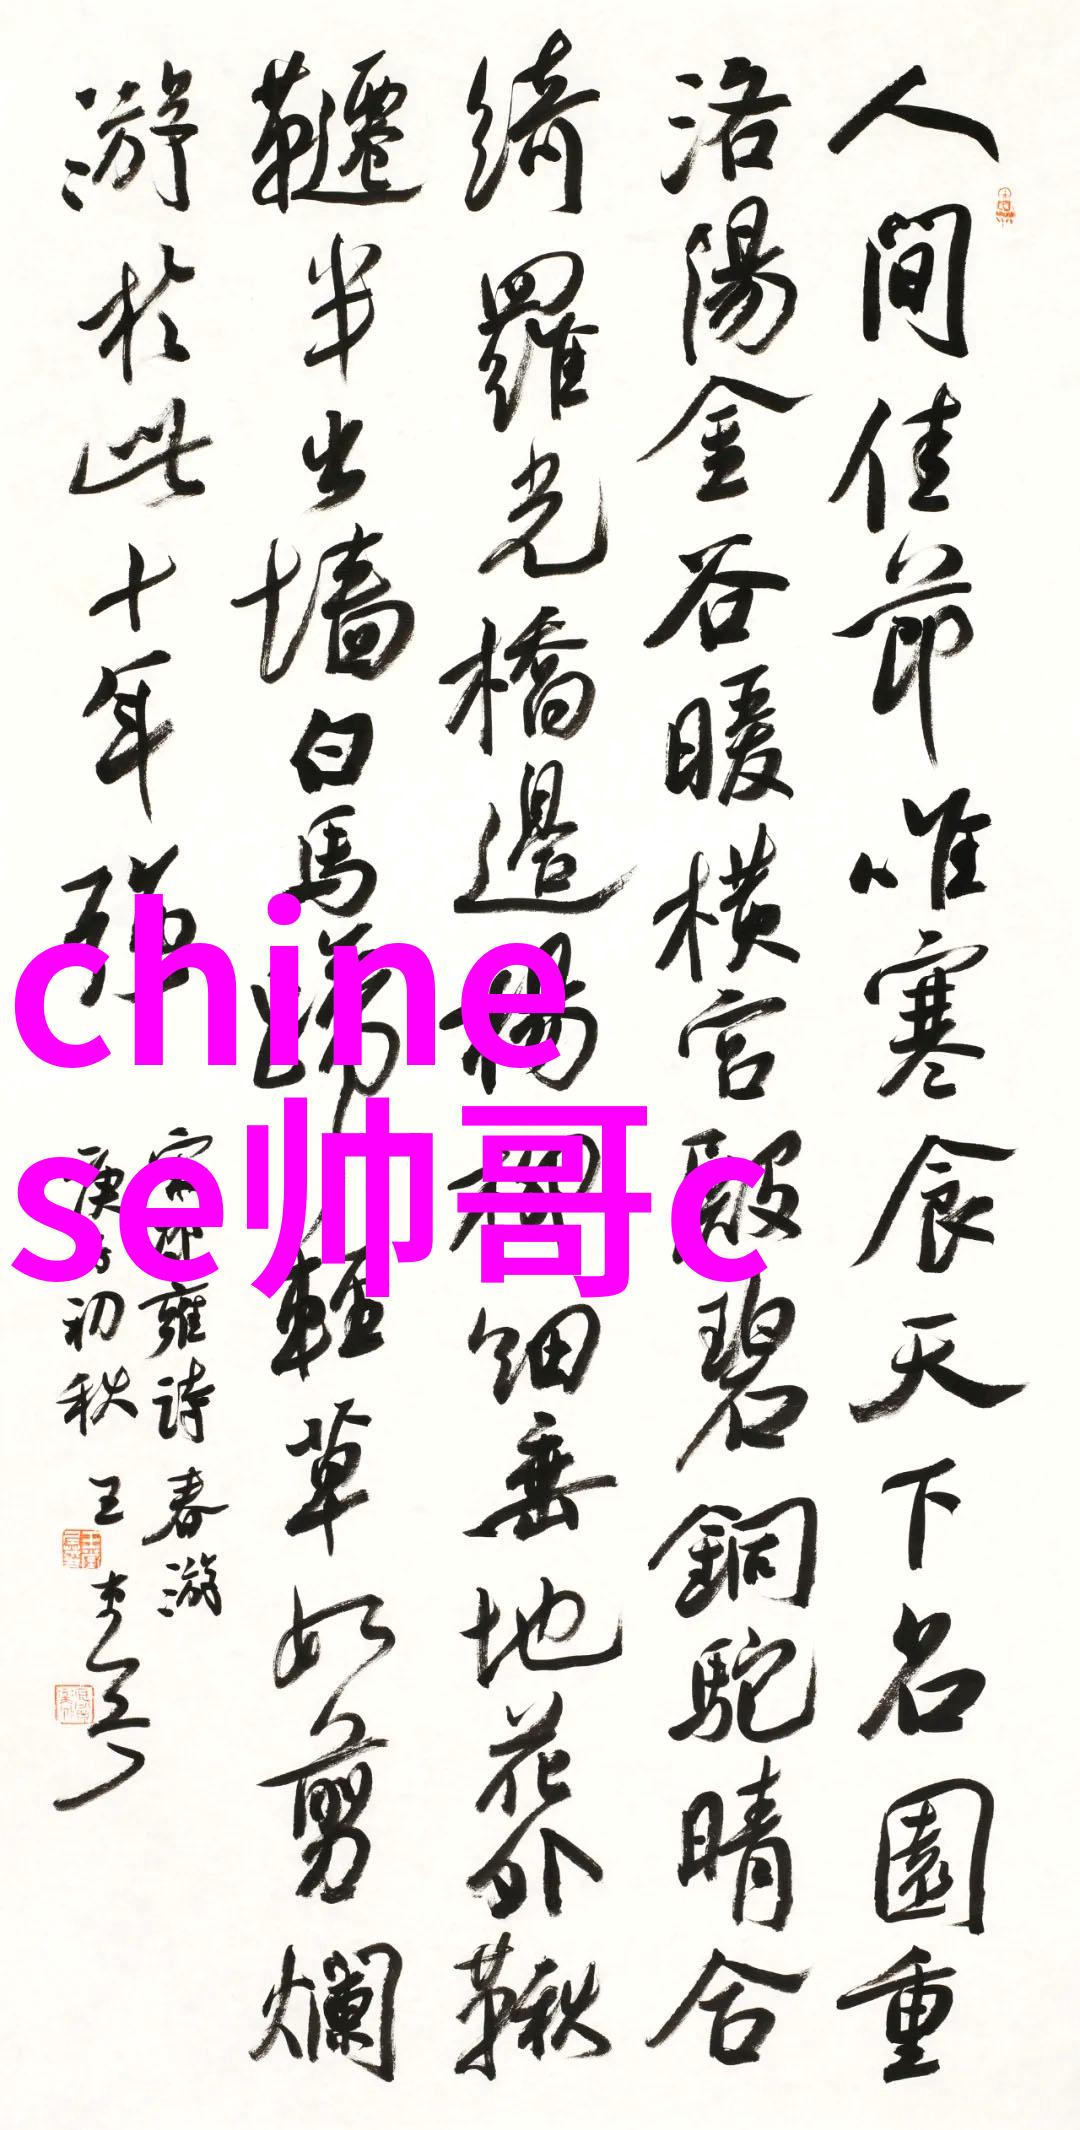 人間佳節唯寒食天下名園重
洛陽金谷暖橫宮殿碧銅駝晴合
綺羅光橋邊楊柳細垂地花外鞦
韆半出墙白馬蹄輕草如剪爛
游於此十年強
宋邵雍詩春游
庚寅初秋王
chine
se帅哥c